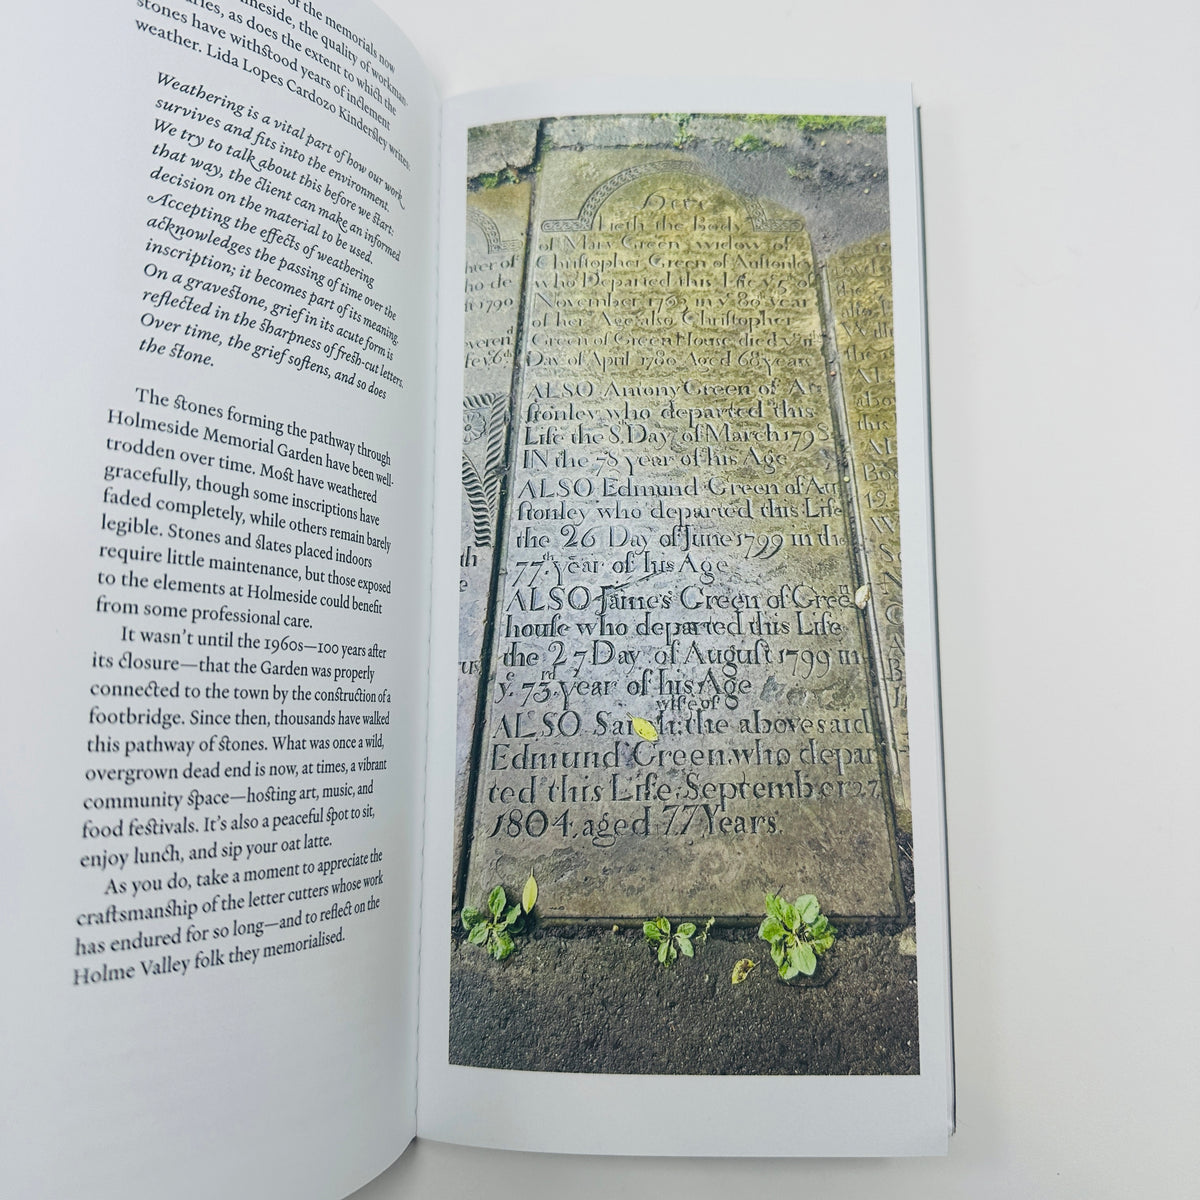 of the memorials now
meside, the quality of workman-
ries, as does the extent to which the
stones have withstood years of inclement
weather. Lida Lopes Cardozo Kindersley writes:
Weathering is a vital part of how our work
survives and fits into the environment.
We try to talk about this before we start:
that way, the client can make an informed
decision on the material to be used.
Accepting the effects of weathering
acknowledges the passing of time over the
inscription; it becomes part of its meaning.
On a gravestone, grief in its acute form is
reflected in the sharpness of fresh-cut letters.
Over time, the grief softens, and so does
the stone.
The stones forming the pathway through
Holmeside Memorial Garden have been well-
trodden over time. Most have weathered
gracefully, though some inscriptions have
faded completely, while others remain barely
legible. Stones and slates placed indoors
require little maintenance, but those exposed
to the elements at Holmeside could benefit
from some professional care.
It wasn't until the 1960s—100 years after
its closure—that the Garden was properly
connected to the town by the construction of a
footbridge. Since then, thousands have walked
this pathway of stones. What was once a wild,
overgrown dead end is now, at times, a vibrant
community space—hosting art, music, and
food festivals. It's also a peaceful spot to sit,
enjoy lunch, and sip your oat latte.
As you do, take a moment to appreciate the
craftsmanship of the letter cutters whose work
has endured for so long—and to reflect on the
Holme Valley folk they memorialised.
Here
Lieth the Body
of Mary Green widow of
Christopher Green of Austonley
who Departed this Life
November in ye 80 year
of her Age also Christopher
Green of Green House died
Day of April 1780 Aged 68 years
ALSO Antony Green of Au
stonley who departed this
Life the 8 Day of March 1798
IN the 78 year of his Age
ALSO Edmund Green of Au
stonley who departed this Life
the 26 Day of June 1799 in the
77th year of his Age
ALSO James Green of Green
house who departed this Life
the 27 Day of August 1799 in
ye 73rd year of his Age
wife of
ALSO Sarah: the abovesaid
Edmund Green. who depar
ted this Life September 27,
1804. aged 77 Years.